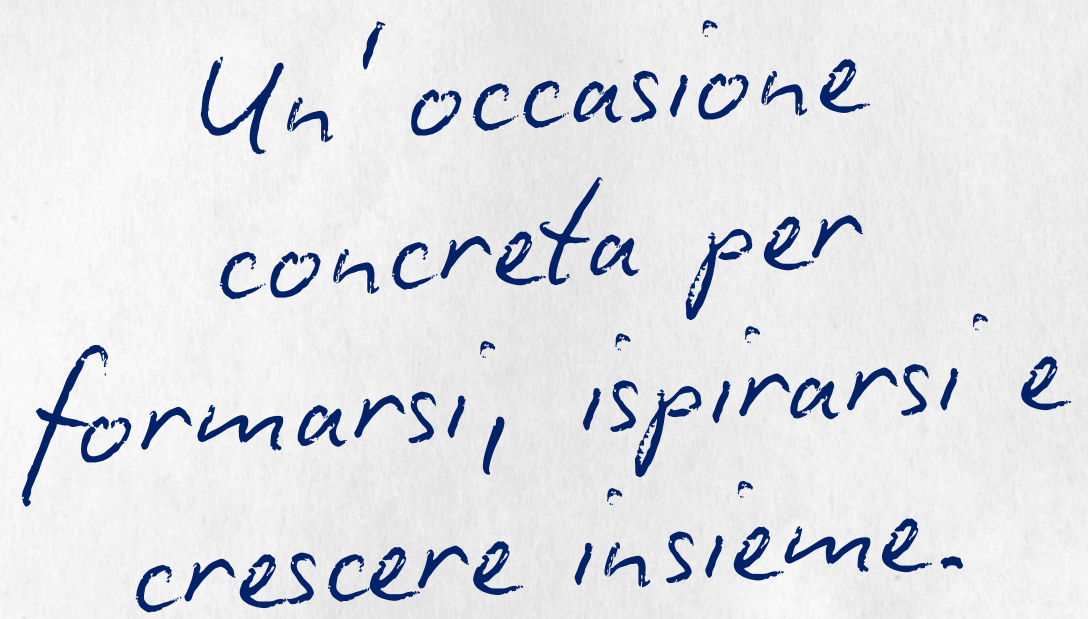 Un'occasione
concreta per
formarsi, ispirarsi e
crescere insieme.